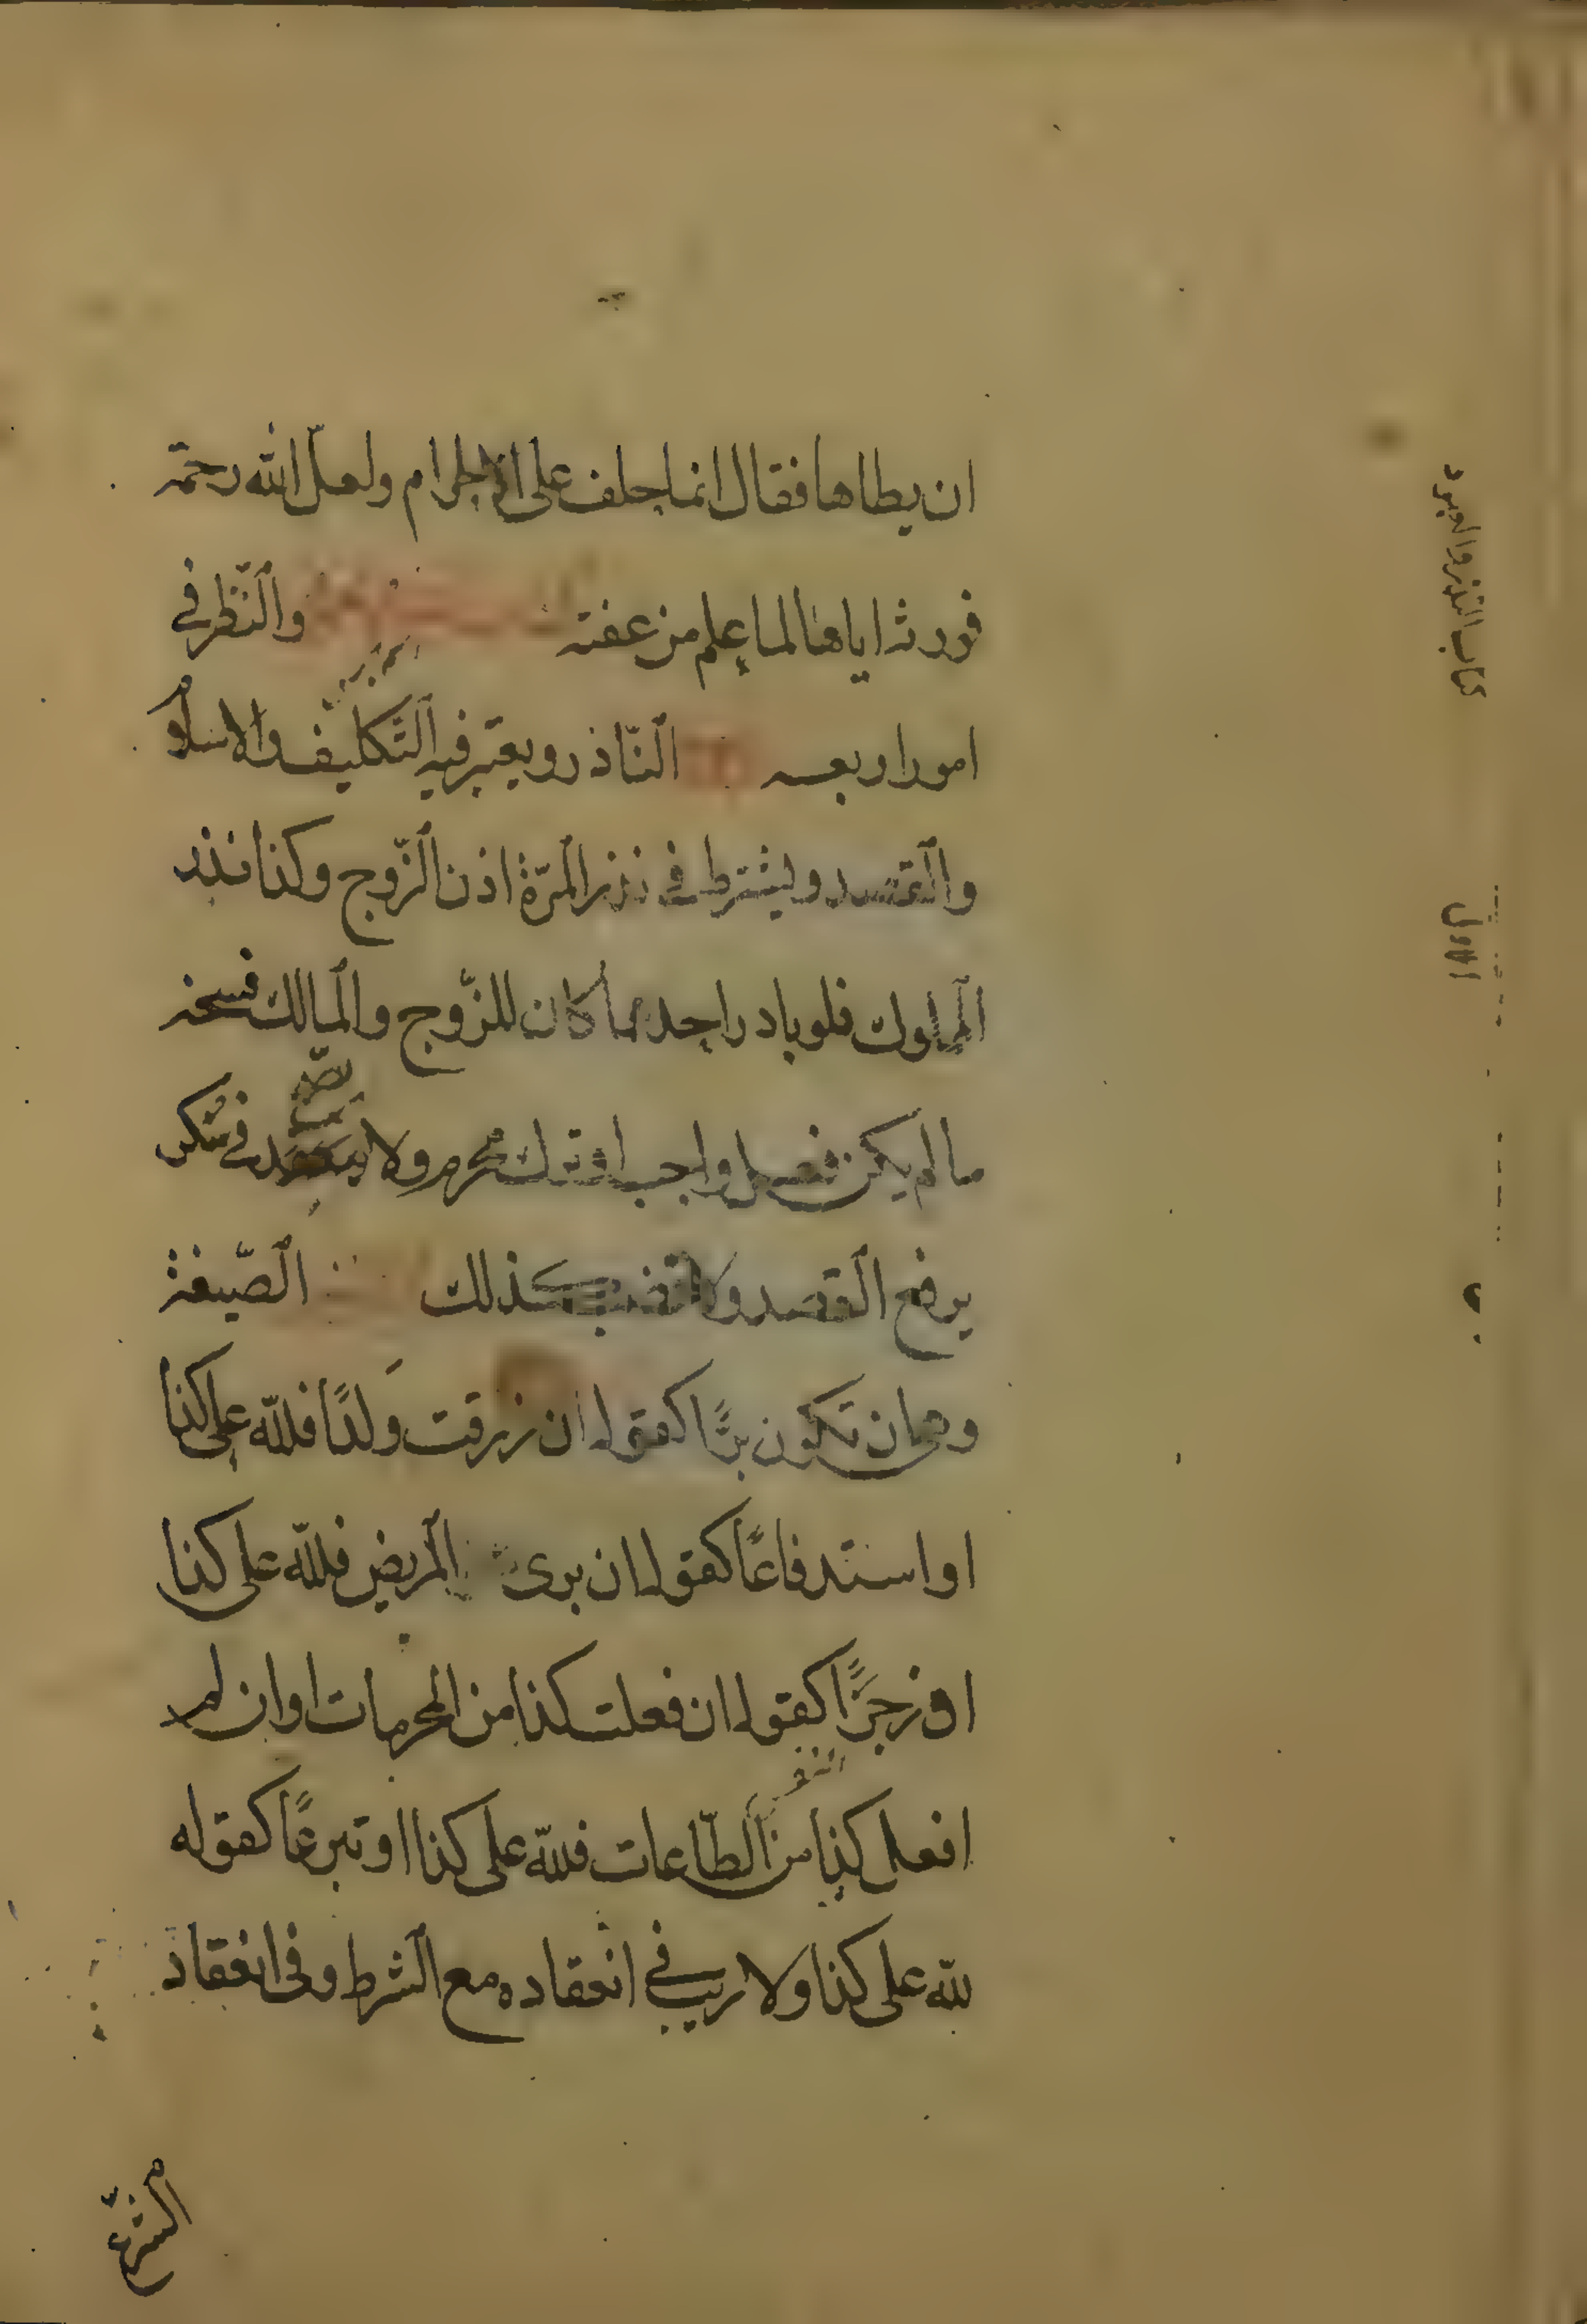 ان يطاها فقال انما حلف على الاحرام ولعل الله رحمه
فورثه اياها لما علم من عفته والنّظر فى
امور اربعه النّاذر ويعتبر فيه التّكليف والاسلام
والقصد ويشترط فى نذر المرّة اذن الزّوج وكذا نذر
المملوك فلو بادر احدهما كان للزّوج والمالك فسخه
ما لم يكن فعل واجب او ترك محرم ولا ينعقد فى سكر
يرفع القصد ولا غضب كذلك الصّيغة
وهى ان تكون برًّا كقوله ان رزقت ولدًا فللّه على كذا
او استدفاعًا كقوله ان برى المريض فللّه على كذا
او زجرًا كقوله ان فعلت كذا من المحرمات او ان لم
افعل كذا من الطّاعات فللّه على كذا او تبرعًا كقوله
للّه على كذا ولا ريب فى انعقاده مع الشرط وفى انعقاد
كتاب النذر والعهود